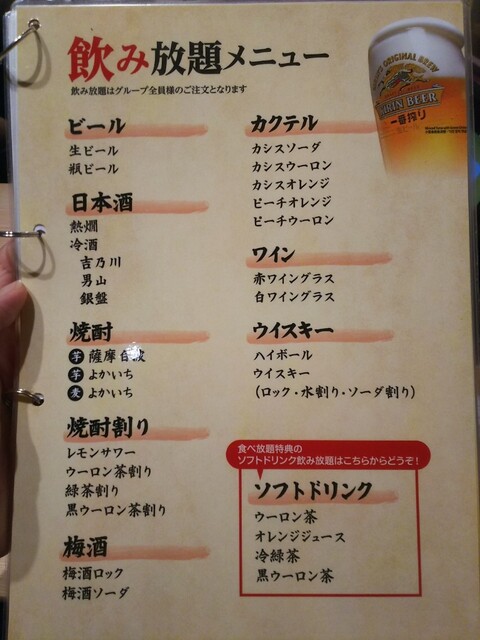 飲み放題メニュー
飲み放題はグループ全員様のご注文となります
ビール
生ビール
瓶ビール
日本酒
熱燗
冷酒
吉乃川
男山
銀盤
焼酎
芋 薩摩白波
芋 よかいち
麦 よかいち
焼酎割り
レモンサワー
ウーロン茶割り
緑茶割り
黒ウーロン茶割り
梅酒
梅酒ロック
梅酒ソーダ
カクテル
カシスソーダ
カシスウーロン
カシスオレンジ
ピーチオレンジ
ピーチウーロン
ワイン
赤ワイングラス
白ワイングラス
ウイスキー
ハイボール
ウイスキー
(ロック・水割り・ソーダ割り)
食べ放題特典の
ソフトドリンク飲み放題はこちらからどうぞ!
ソフトドリンク
ウーロン茶
オレンジジュース
冷緑茶
黒ウーロン茶
ORIGINAL BREW
KIRIN BEER
一番搾り